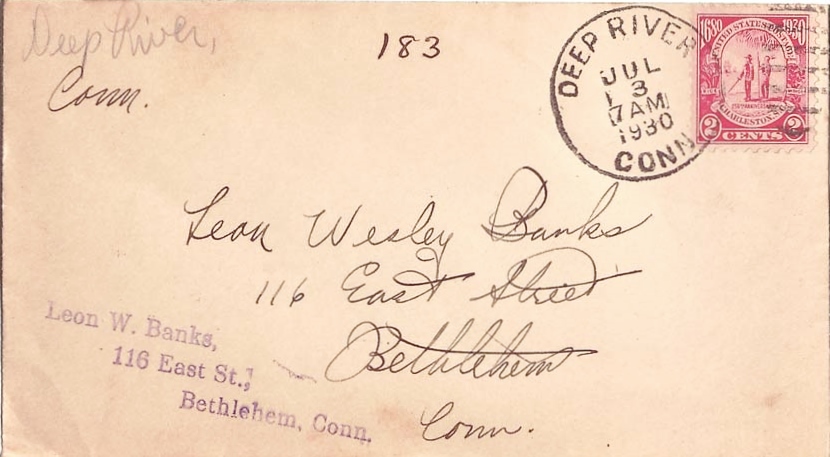 Deep River,
Conn.
183
DEEP RIVER
JUL
3
7 AM
1930
CONN
1680 1930
UNITED STATES POSTAGE
250TH ANNIVERSARY
CHARLESTON, S.C.
2 CENTS 2
Leon Wesley Banks
116 East Street
Bethlehem
Conn.
Leon W. Banks,
116 East St.,
Bethlehem, Conn.